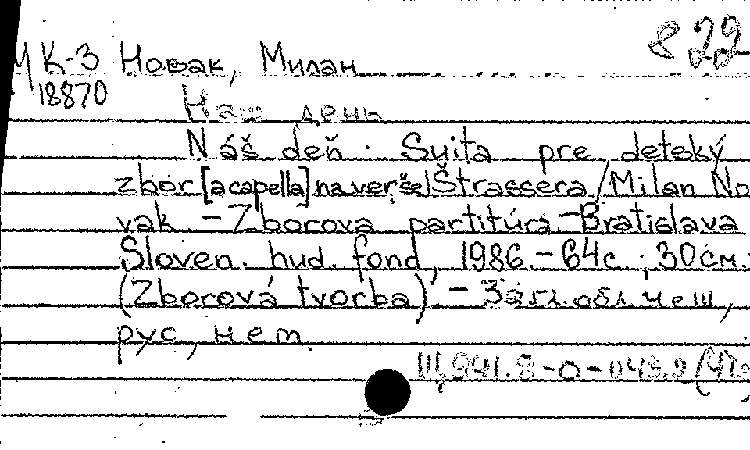 822
МК-3 Новак, Милан
18870
Наш день
Náš deň. Suita pre detský
zbor [a capella] na verše J Štrassera / Milan No
vak – Zborová partitúra – Bratislava
Sloven. hud. fond, 1986. – 64с ; 30см.
(Zborová tvorba) – Загл. обл. чеш,
рус, нем.
Щ941.8-0-